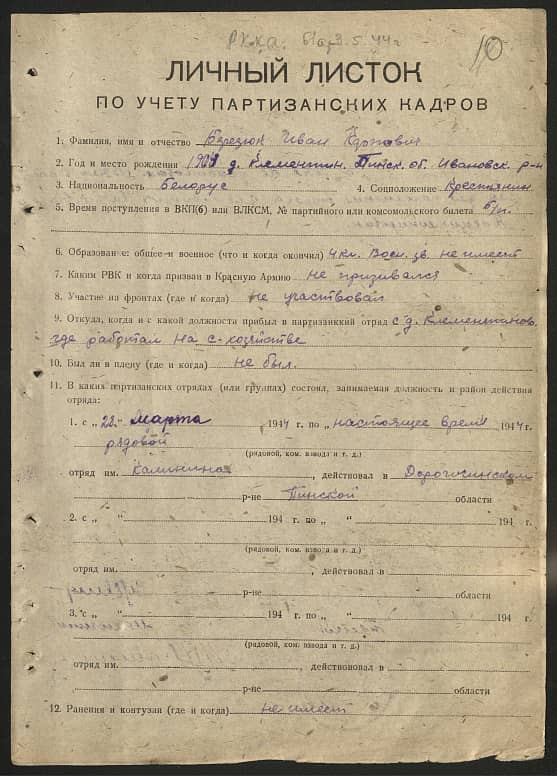 РККА. 5.44г
10
ЛИЧНЫЙ ЛИСТОК
ПО УЧЕТУ ПАРТИЗАНСКИХ КАДРОВ
1. Фамилия, имя и отчество Березюк Иван Карпович
2. Год и место рождения д. Клементин. Пинск. об. Ивановск. р-н
3. Национальность Белорус 4. Соцположение Крестьянин
5. Время поступления в ВКП(б) или ВЛКСМ, № партийного или комсомольского билета б/п.
6. Образование: общее и военное (что и когда окончил) 4 кл. Воен. зв. не имеет
7. Каким РВК и когда призван в Красную Армию не призывался
8. Участие на фронтах (где и когда) не участвовал
9. Откуда, когда и с какой должности прибыл в партизанский отряд с д. Клементинов,
где работал на с-хозяйстве
10. Был ли в плену (где и когда) не был.
11. В каких партизанских отрядах (или группах) состоял, занимаемая должность и район действия
отряда:
1. с „22" Марта 1944 г. по „настоящее время 1944 г.
рядовой
(рядовой, ком. взвода и т. д.)
отряд им. Калинина, действовал в Дорогичинском
р-не Пинской области
2. с „ " 194 г. по „ " 194 г.
(рядовой, ком. взвода и т. д.)
отряд им. , действовал в
р-не области
3. с „ " 194 г. по „ " 194 г.
(рядовой, ком. взвода и т. д.)
отряд им. , действовал в
р-не области
12. Ранения и контузии (где и когда) не имеет